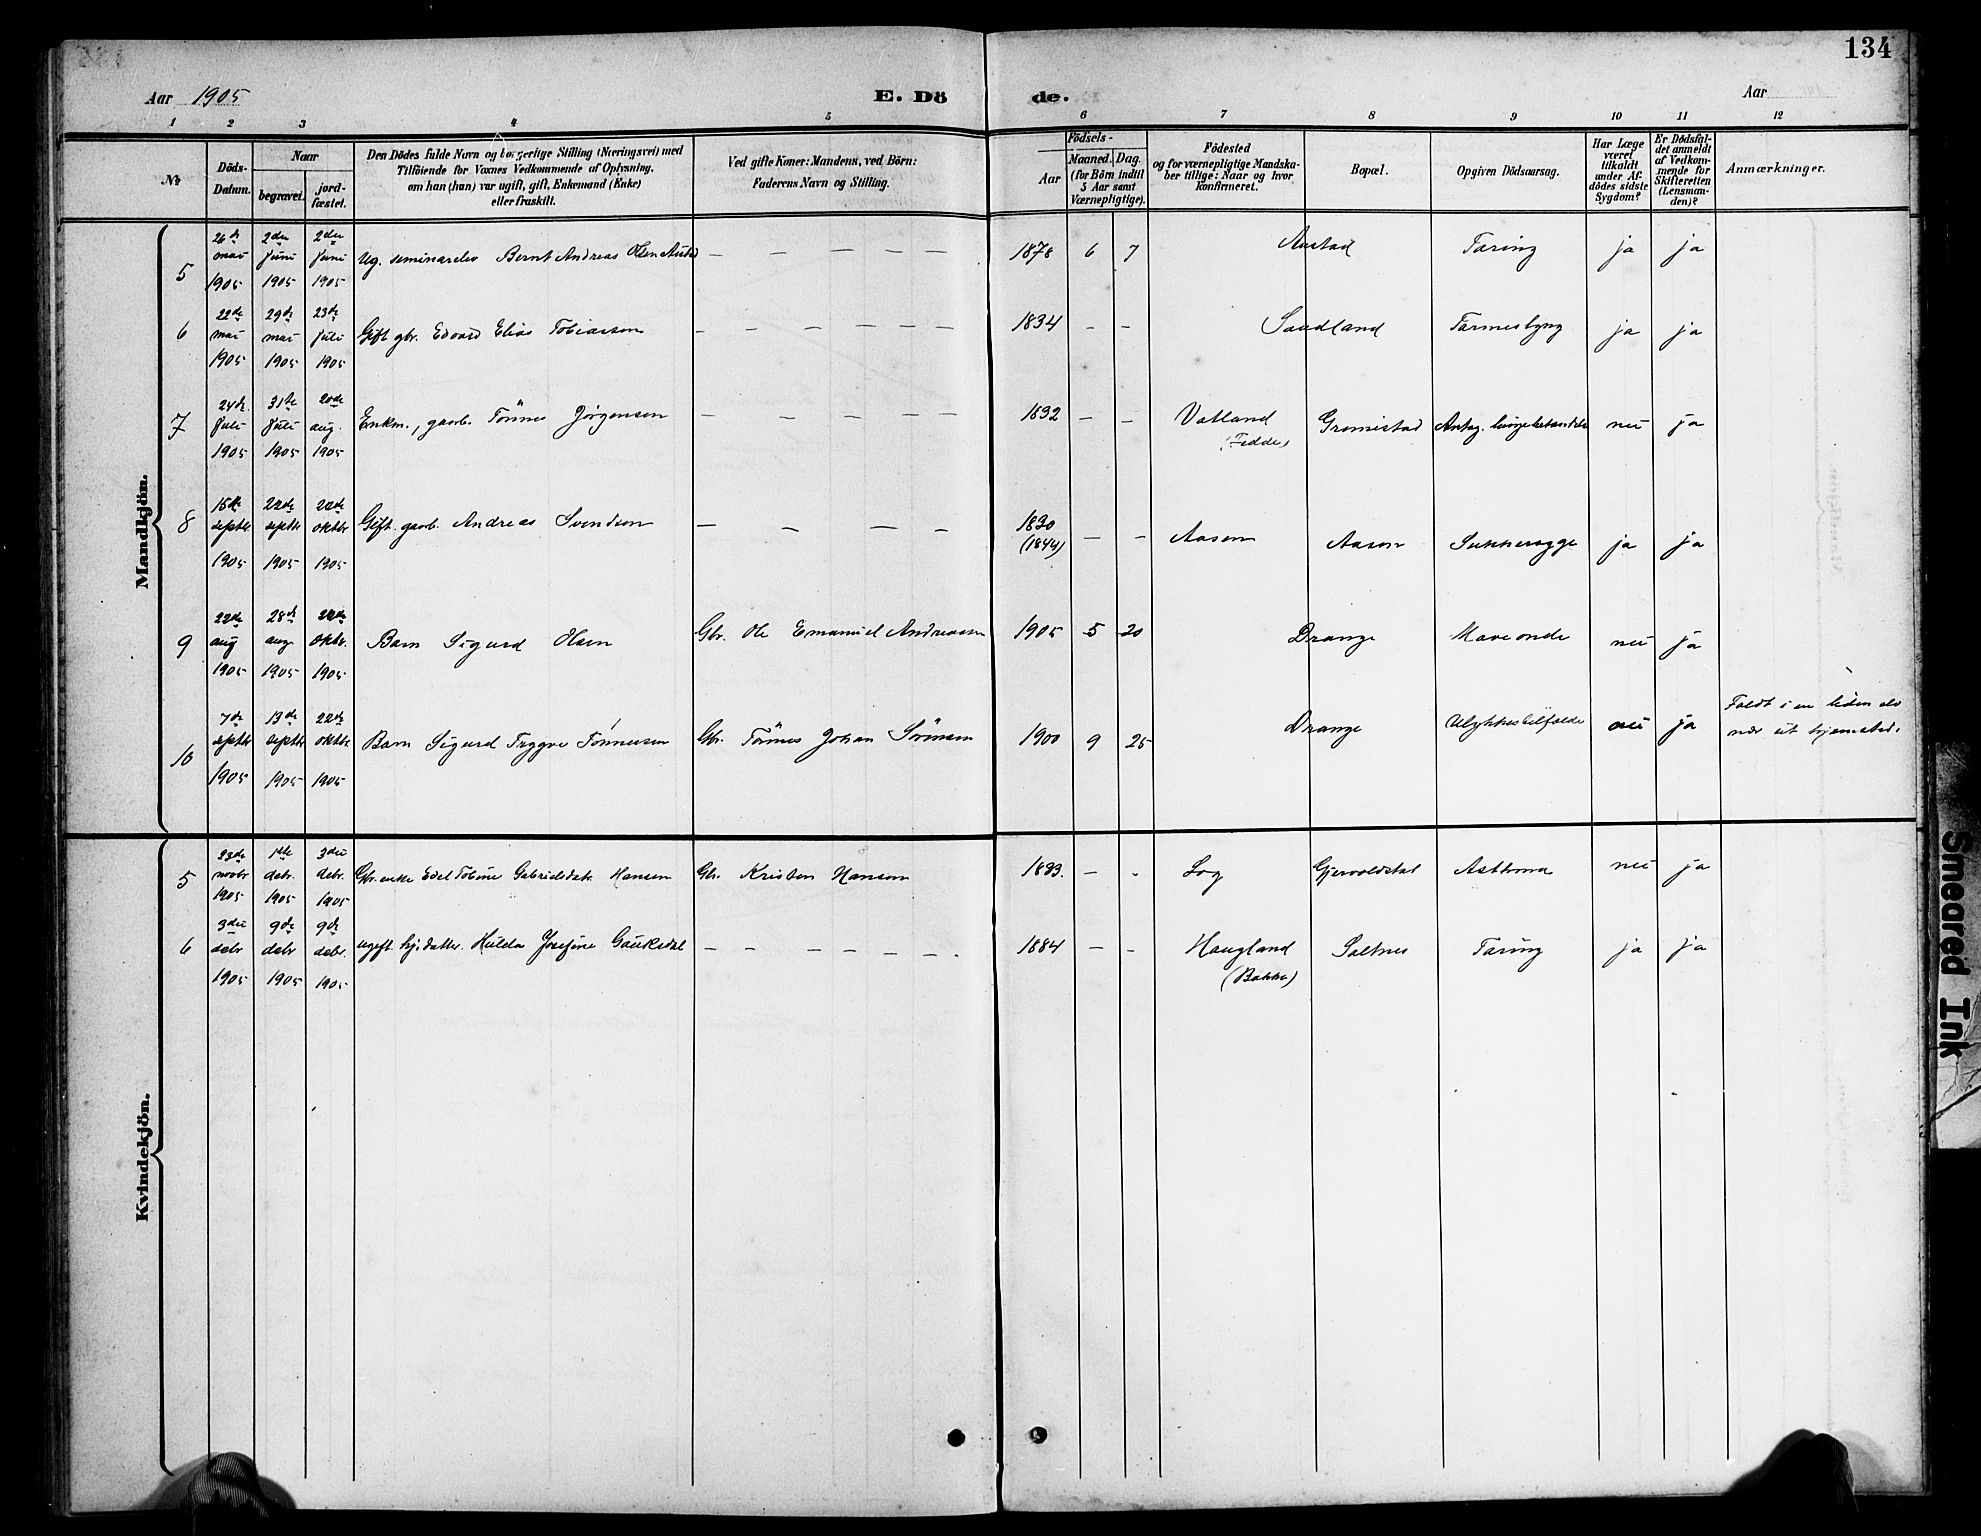 134
Aar 1905
E. Dö
de.
Aar
1 2 3 4 5 6 7 8 9 10 11 12
Nr.
Döds-
Datum.
Naar
begravet.
jord-
fæstet.
Den Dödes fulde Navn og borgerlige Stilling (Næringsvei) med
Tilföiende for Voxnes Vedkommende af Oplysning,
om han (hun) var ugift, gift, Enkemand (Enke)
eller fraskilt.
Ved gifte Koner: Mandens, ved Börn:
Faderens Navn og Stilling.
Födsels-
Aar
Maaned. Dag.
(for Börn indtil
5 Aar samt
Værnepligtige).
Födested
og for værnepligtige Mandska-
ber tillige: Naar og hvor
konfirmeret.
Bopæl.
Opgiven Dödsaarsag.
Har Læge
været
tilkaldt
under Af-
dödes sidste
Sygdom?
Er Dödsfal-
det anmeldt
af Vedkom-
mende for
Skifteretten
(Lensman-
den)?
Anmærkninger.
Mandkjön.
5 26de mai 1905 2den juni 1905 2den juni 1905 Ug. seminarelev Bernt Andreas Olsen — — — — 1878 6 7 Austad Tæring ja ja
6 22de mai 1905 29de mai 1905 23de juli 1905 Gift gbr. Edvard Elias Tobiassen — — — — 1834 — — Sandland Tarmeslyng ja ja
7 24de juli 1905 31te juli 1905 20de aug. 1905 Enkm., gaarb. Tönnes Jörgensen — — — — 1832 — — Vatland (Fedde) Gromestad Antag. nei ja
8 15de septbr 1905 22de septbr 1905 22de oktbr 1905 Gift. gaarb. Andreas Svendsen — — — — 1830 (1844) — — Aasen Aasen Sukkersyge ja ja
9 22de aug 1905 28de aug 1905 22de oktbr. 1905 Barn Sigurd Olsen Gbr. Ole Emanuel Andreassen 1905 5 20 Drange Maveonde nei ja
10 7de septbr 1905 13de septbr 1905 22de oktbr 1905 Barn Sigurd Tryggve Tönnesen Gbr. Tönnes Johan Sörensen 1900 9 25 Drange Ulykkestilfælde nei ja Faldt i en liden elv
nær sit hjemsted.
Kvindekjön.
5 23de novbr 1905 1ste debr. 1905 3die debr. 1905 Gbr. enke Edel Tobine Gabrielsdtr. Hansen Gbr. Kristen Hansen 1833. — - Log Gjervoldstad Asthma nei ja
6 3die debr 1905 9de debr 1905 9de debr. 1905 ugift hj. datter. Hulda Josefine Gauksdal — — — — 1884 — — Haugland (Bakke) Saltnes Tæring ja ja
Smeared Ink